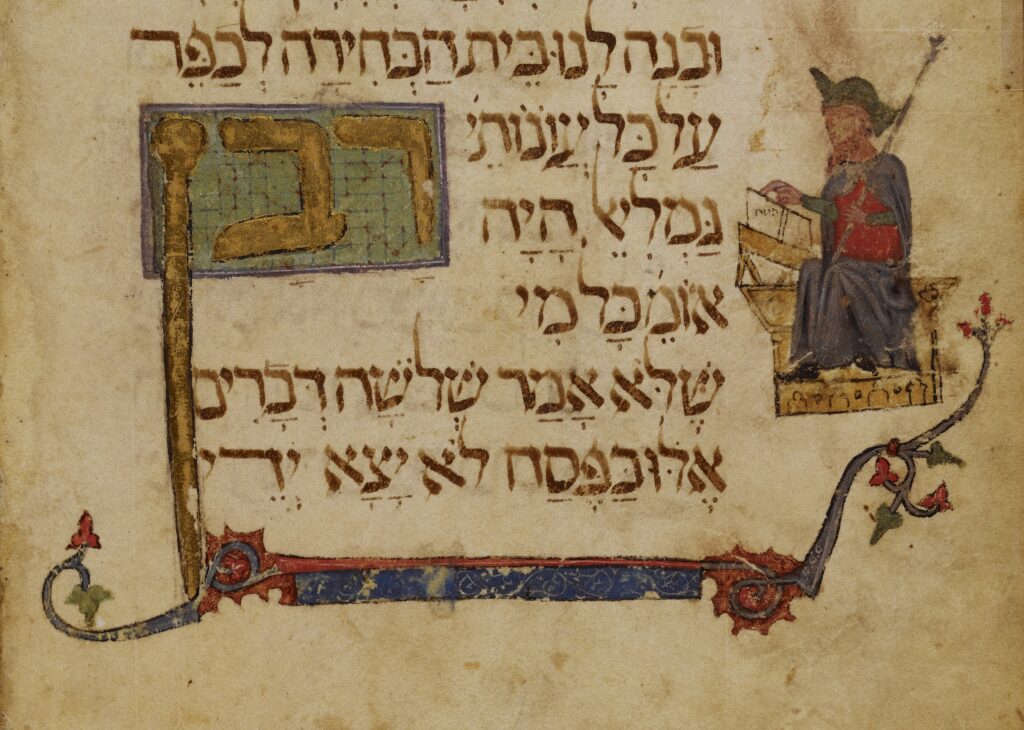 וּבָנָה לָנוּ בֵּית הַבְּחִירָה לְכַפֵּר
עַל כָּל עֲוֹנֹתֵי'
רבן
גַּמְלִיאֵל הָיָה
אוֹמֵ' כָּל מִי
שֶׁלֹּא אָמַר שְׁלֹשָׁה דְּבָרִים
אֵלּוּ בַּפֶּסַח לֹא יָצָא יְדֵי